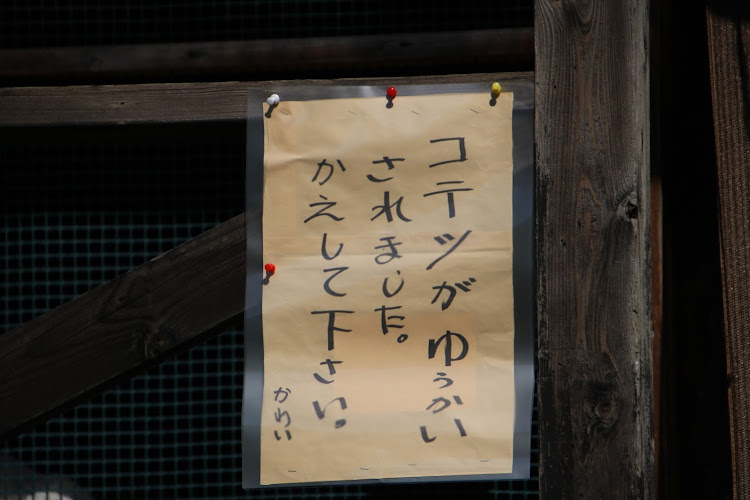 コテツがゆうかい
されました。
かえして下さい。
かわい